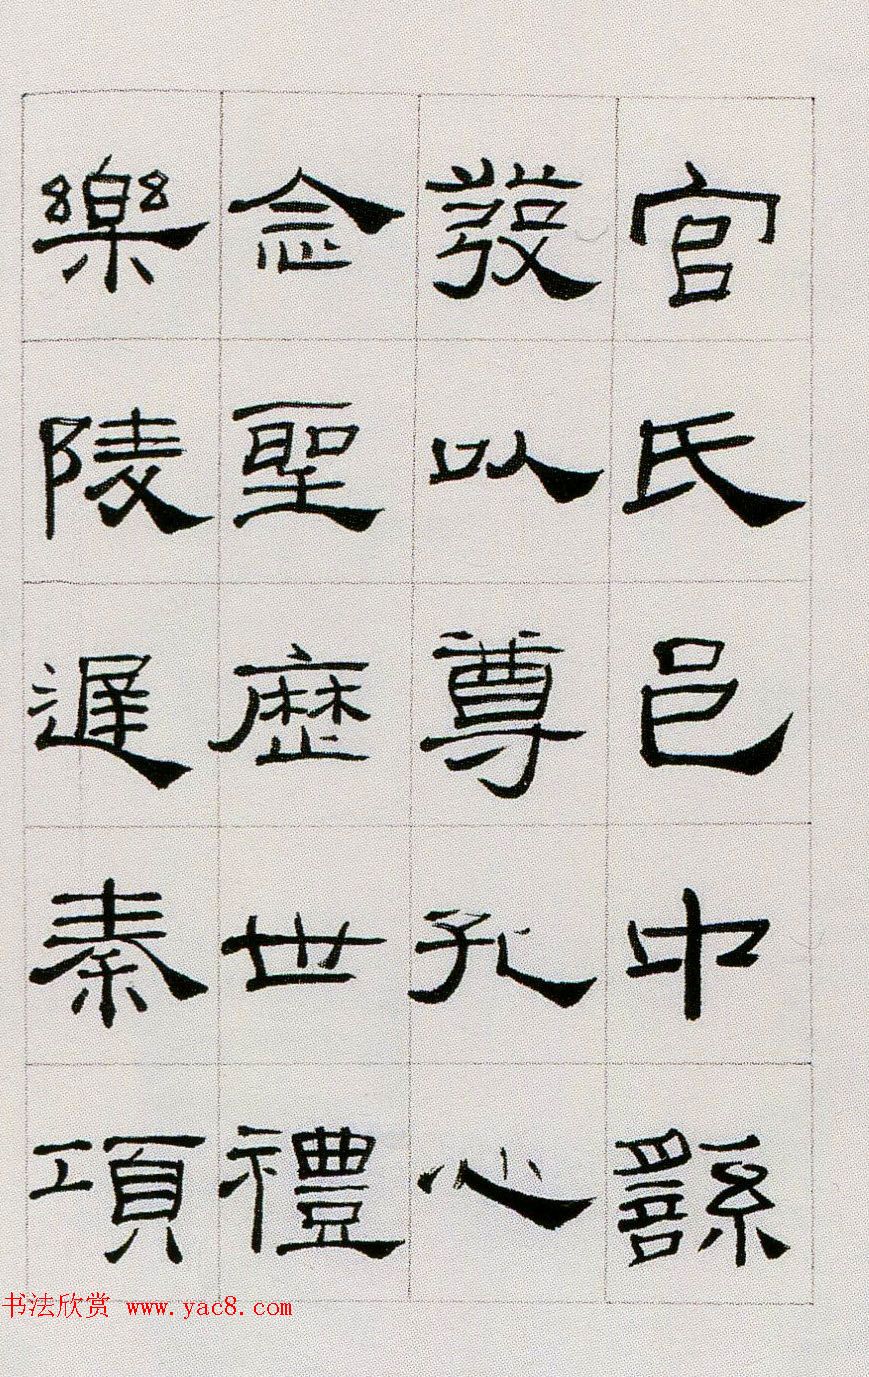 官氏邑中繇
發以尊孔心
念聖歷世禮
樂陵遲秦項
书法欣赏 www.yac8.com